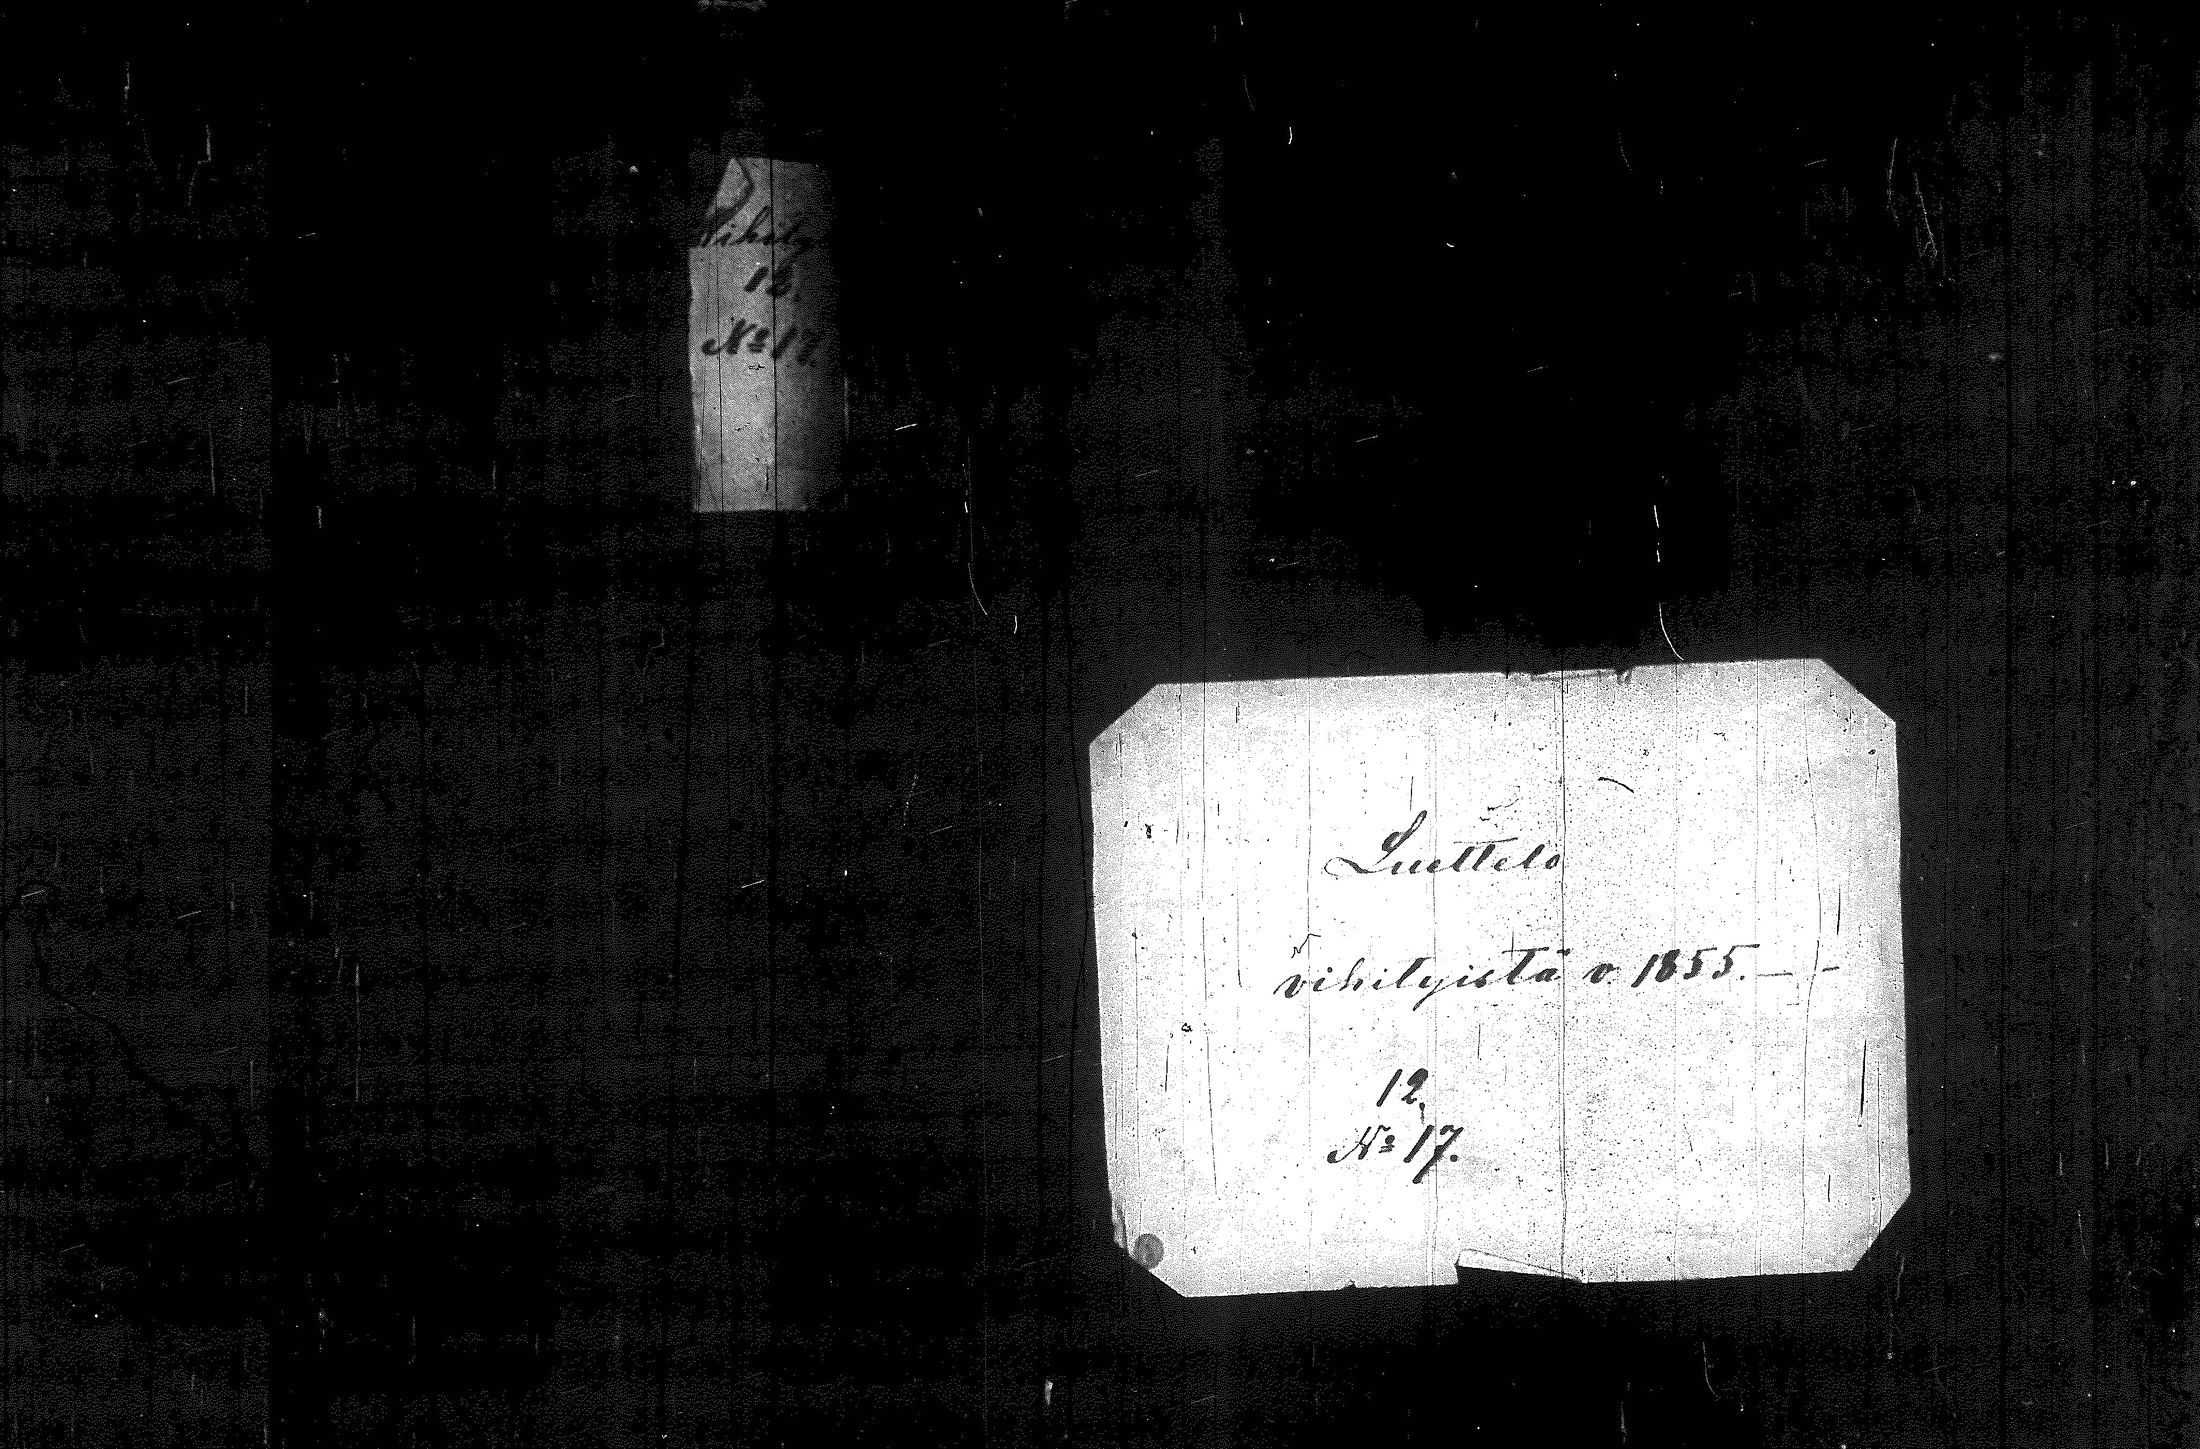 Vihity
12.
No 17.
Luettelo
vihityistä v. 1855. — -
12.
No 17.